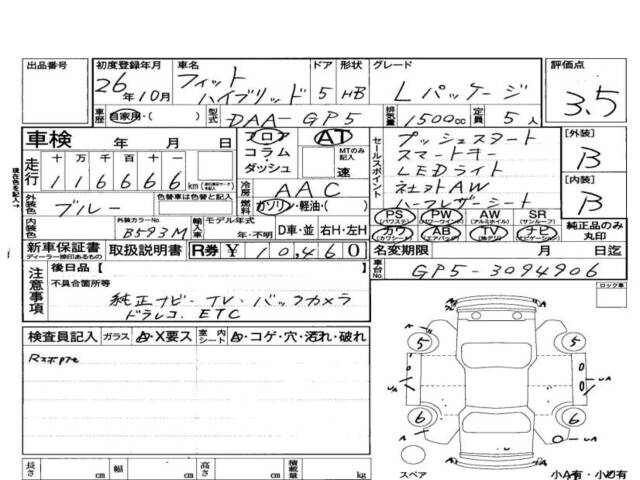 出品番号
初度登録年月
26年10月
車名
フィット
ハイブリッド
ドア
5
形状
HB
グレード
Lパッケージ
評価点
3.5
車歴
自家用・( )
型式
DAA-GP5
排気量
1500cc
定員
5人
車検 年 月 日
フロア
コラム・
ダッシュ
AT
MTのみ記入
速
セールスポイント
プッシュスタート
スマートキー
LEDライト
社外AW
ハーフレザーシート
[外装]
B
[内装]
B
走行
十 万 千 百 十 一
116666km
冷房
AAC
燃料
ガソリン・軽油・( )
外装色
ブルー
色替車は色替と記入
内装色
外装カラーNo.
B593M
輸入車
モデル年式
年・不明
D車・並
右H・左H
PS
(パワステ)
PW
(パワーウインド)
AW
(アルミホイル)
SR
(サンルーフ)
カワ
(カワシート)
AB
(エアバッグ)
TV
ナビ
(ナビゲーション)
純正品のみ
丸印
新車保証書
ディーラー捺印あるもの
取扱説明書
R券 ¥10,460
名変期限 月 日迄
車台No.
GP5-3094906
現在色を記入→
注意事項
後日品【
不具合箇所等
純正ナビ・TV・バックカメラ
ドラレコ、ETC
ロック車
検査員記入
ガラス
A・X要ス
室内シート
A・コゲ・穴・汚れ・破れ
5
5
6
6
A
UA
UA
UA
A
スペア
小A有・小U有
長さ cm
幅 cm
高さ cm
積載量 kg